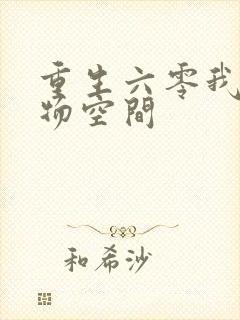 重生六零我
物空間
和希沙